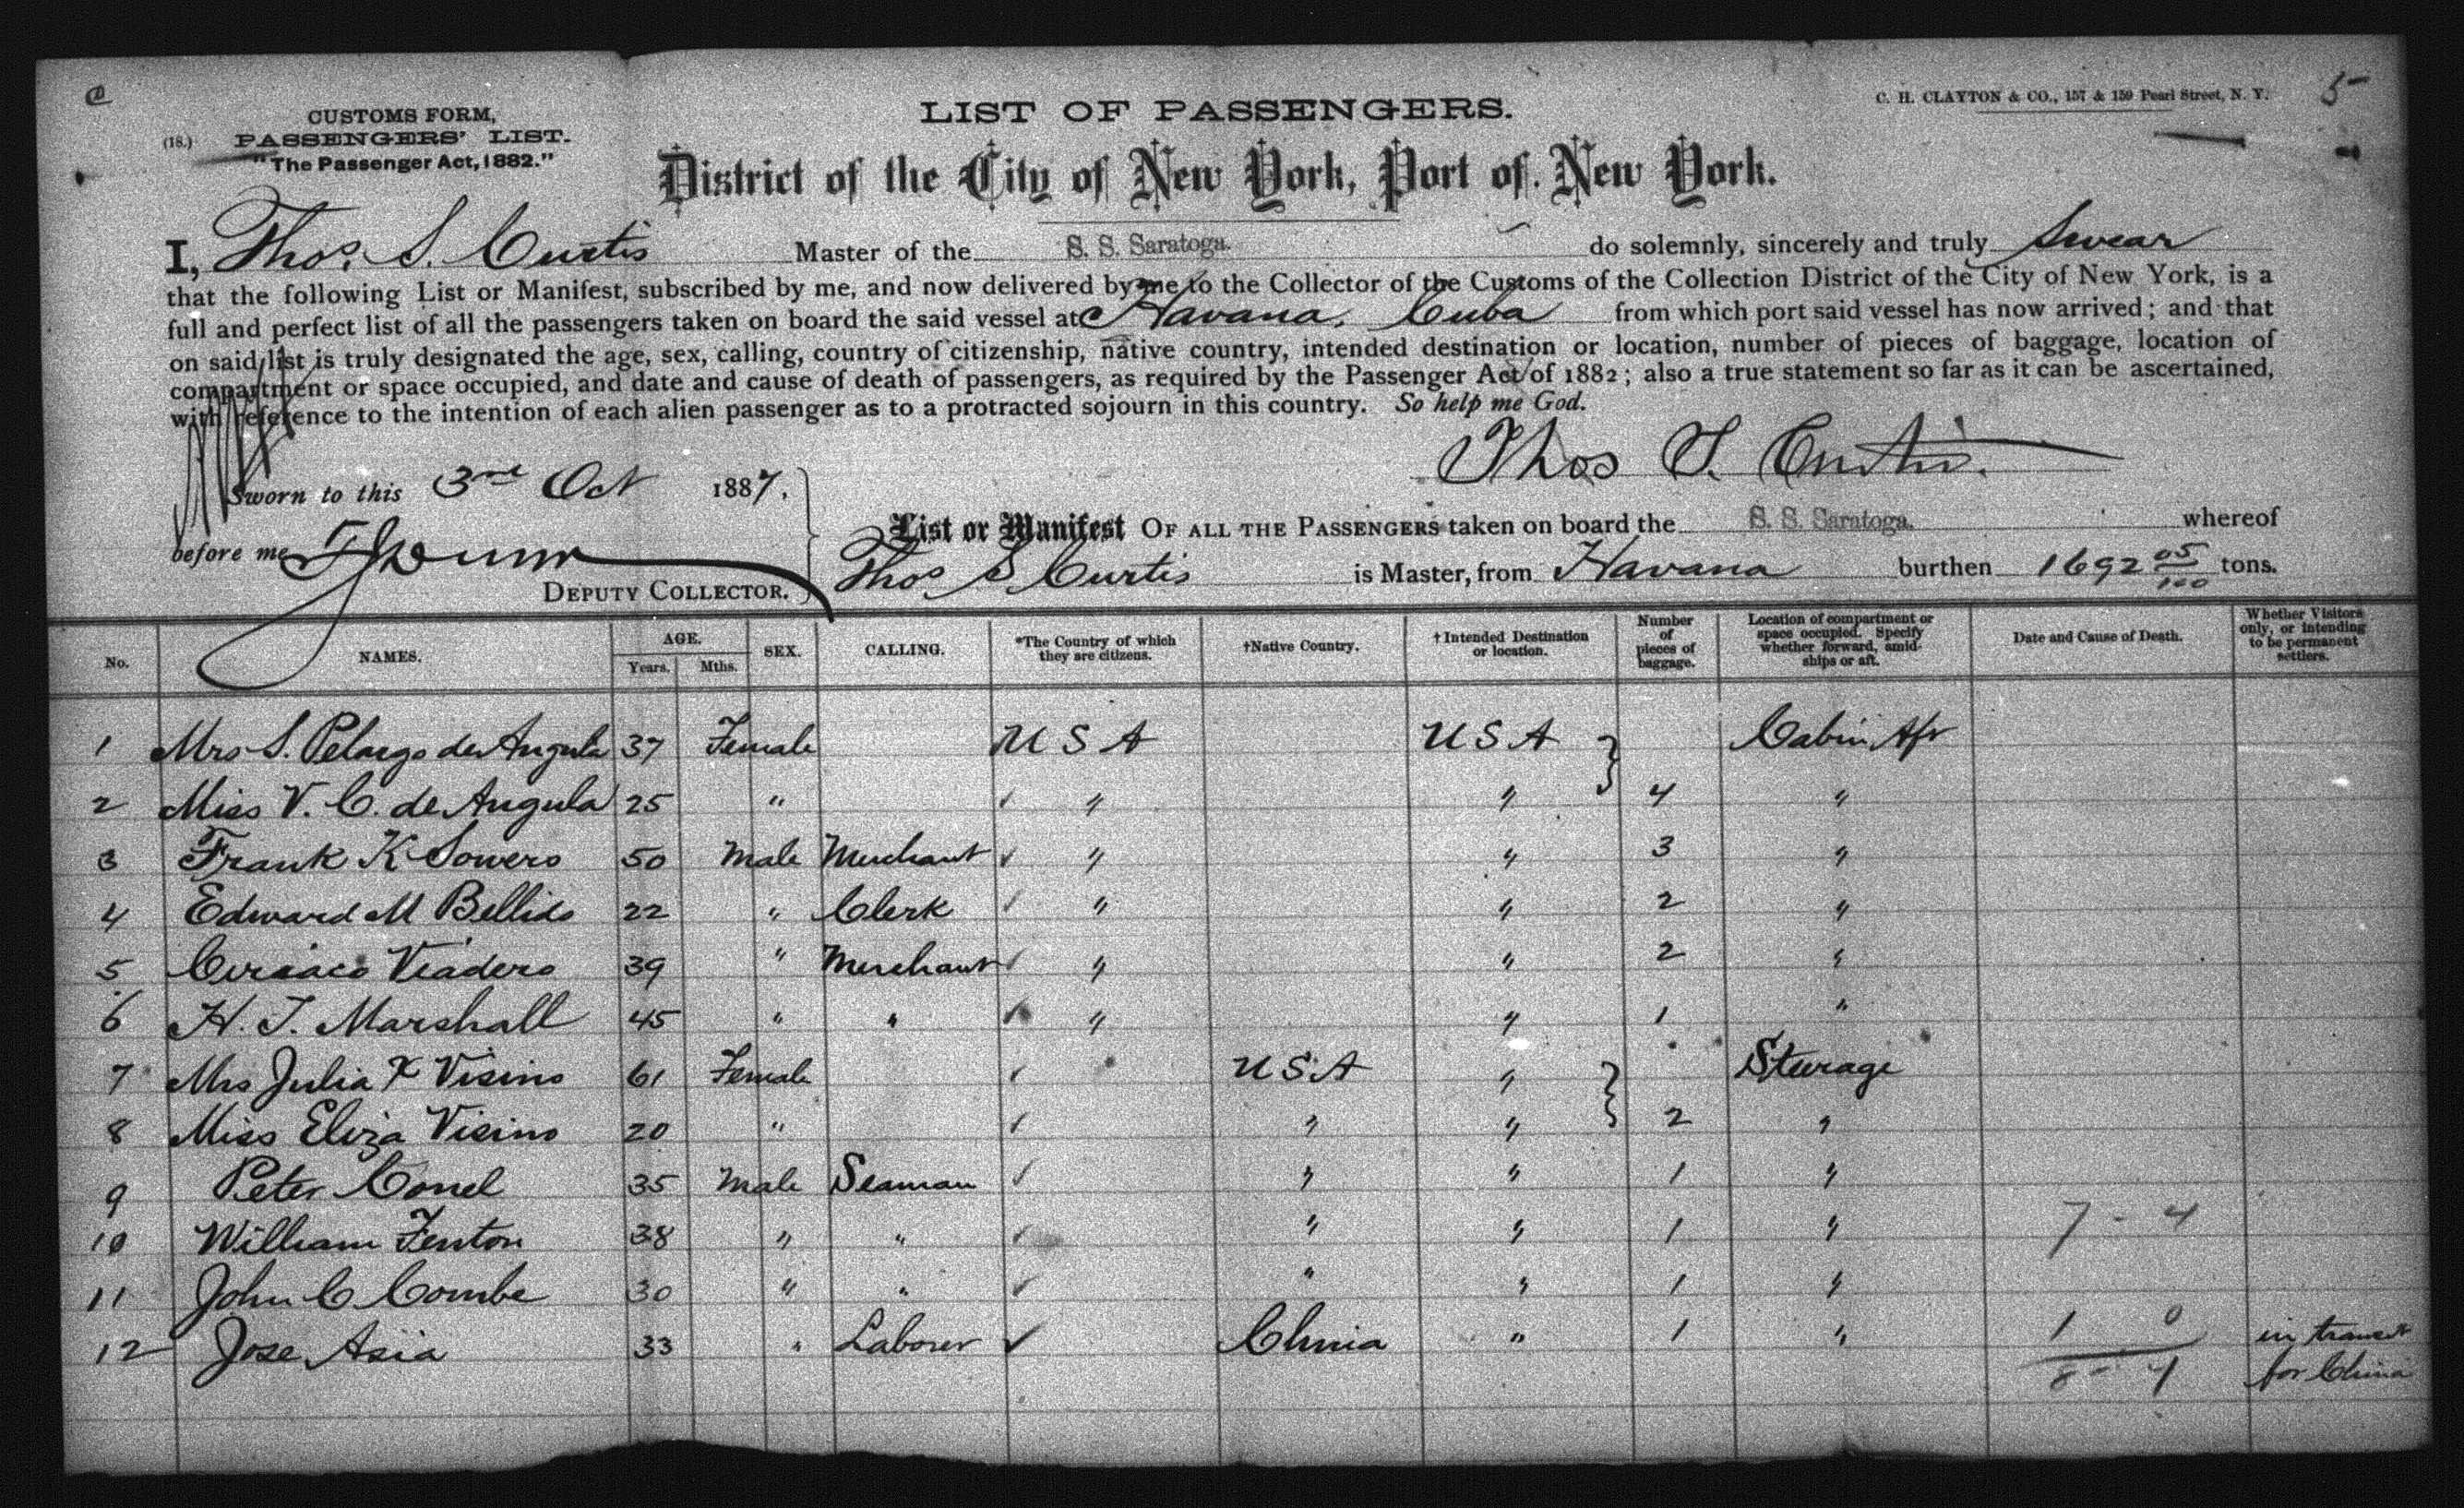 CUSTOMS FORM,
(18.) PASSENGERS' LIST.
"The Passenger Act, 1882."
LIST OF PASSENGERS.
C. H. CLAYTON & CO., 157 & 159 Pearl Street, N. Y.
5
District of the City of New York, Port of New York.
I, Thos. S. Curtis Master of the S. S. Saratoga. do solemnly, sincerely and truly swear
that the following List or Manifest, subscribed by me, and now delivered by me to the Collector of the Customs of the Collection District of the City of New York, is a
full and perfect list of all the passengers taken on board the said vessel at Havana, Cuba from which port said vessel has now arrived; and that
on said list is truly designated the age, sex, calling, country of citizenship, native country, intended destination or location, number of pieces of baggage, location of
compartment or space occupied, and date and cause of death of passengers, as required by the Passenger Act of 1882; also a true statement so far as it can be ascertained,
with reference to the intention of each alien passenger as to a protracted sojourn in this country. So help me God.
Thos S. Curtis
Sworn to this 3rd Oct 1887,
before me
DEPUTY COLLECTOR.
List or Manifest OF ALL THE PASSENGERS taken on board the S. S. Saratoga. whereof
Thos S Curtis is Master, from Havana burthen 1692 05/100 tons.
No. NAMES. AGE. Years. Mths. SEX. CALLING. *The Country of which they are citizens. †Native Country. †Intended Destination or location. Number of pieces of baggage. Location of compartment or space occupied. Specify whether forward, amidships or aft. Date and Cause of Death. Whether Visitors only, or intending to be permanent settlers.
1 Mrs S. Pelaego de Angula 37 Female U S A U S A Cabin Aft
2 Miss V. C. de Angula 25 " " " 4 "
3 Frank K Sowers 50 Male Merchant " " 3 "
4 Edward M Bellido 22 " Clerk " " 2 "
5 Ciriaco Viadero 39 " Merchant " " 2 "
6 H. T. Marshall 45 " " " " 1 "
7 Mrs Julia Visino 61 Female U S A " Steerage
8 Miss Eliza Visino 20 " " " 2 "
9 Peter Conel 35 Male Seaman " " 1 "
10 William Fenton 38 " " " " 1 " 7 - 4
11 John C Combe 30 " " " " 1 "
12 Jose Asia 33 " Laborer China " 1 " 1 0 in transit
8 - 4 for China